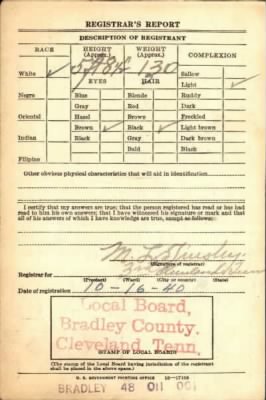 REGISTRAR'S REPORT
DESCRIPTION OF REGISTRANT
RACE HEIGHT (Approx.) WEIGHT (Approx.) COMPLEXION
White ✓ 5 130 Sallow
EYES HAIR Light ✓
Negro Blue Blonde Ruddy
Gray Red Dark
Oriental Hazel Brown Freckled
Brown ✓ Black ✓ Light brown
Indian Black Gray Dark brown
Bald Black
Filipino
Other obvious physical characteristics that will aid in identification
I certify that my answers are true; that the person registered has read or has had
read to him his own answers; that I have witnessed his signature or mark and that
all of his answers of which I have knowledge are true, except as follows:
M. L.
(Signature of registrar)
Registrar for
(Precinct) (Ward) (City or county) (State)
Date of registration 10-16-40
Local Board,
Bradley County,
Cleveland, Tenn.
(STAMP OF LOCAL BOARD)
(The stamp of the Local Board having jurisdiction of the registrant
shall be placed in the above space.)
U. S. GOVERNMENT PRINTING OFFICE 16-17105
BRADLEY 48 011 001